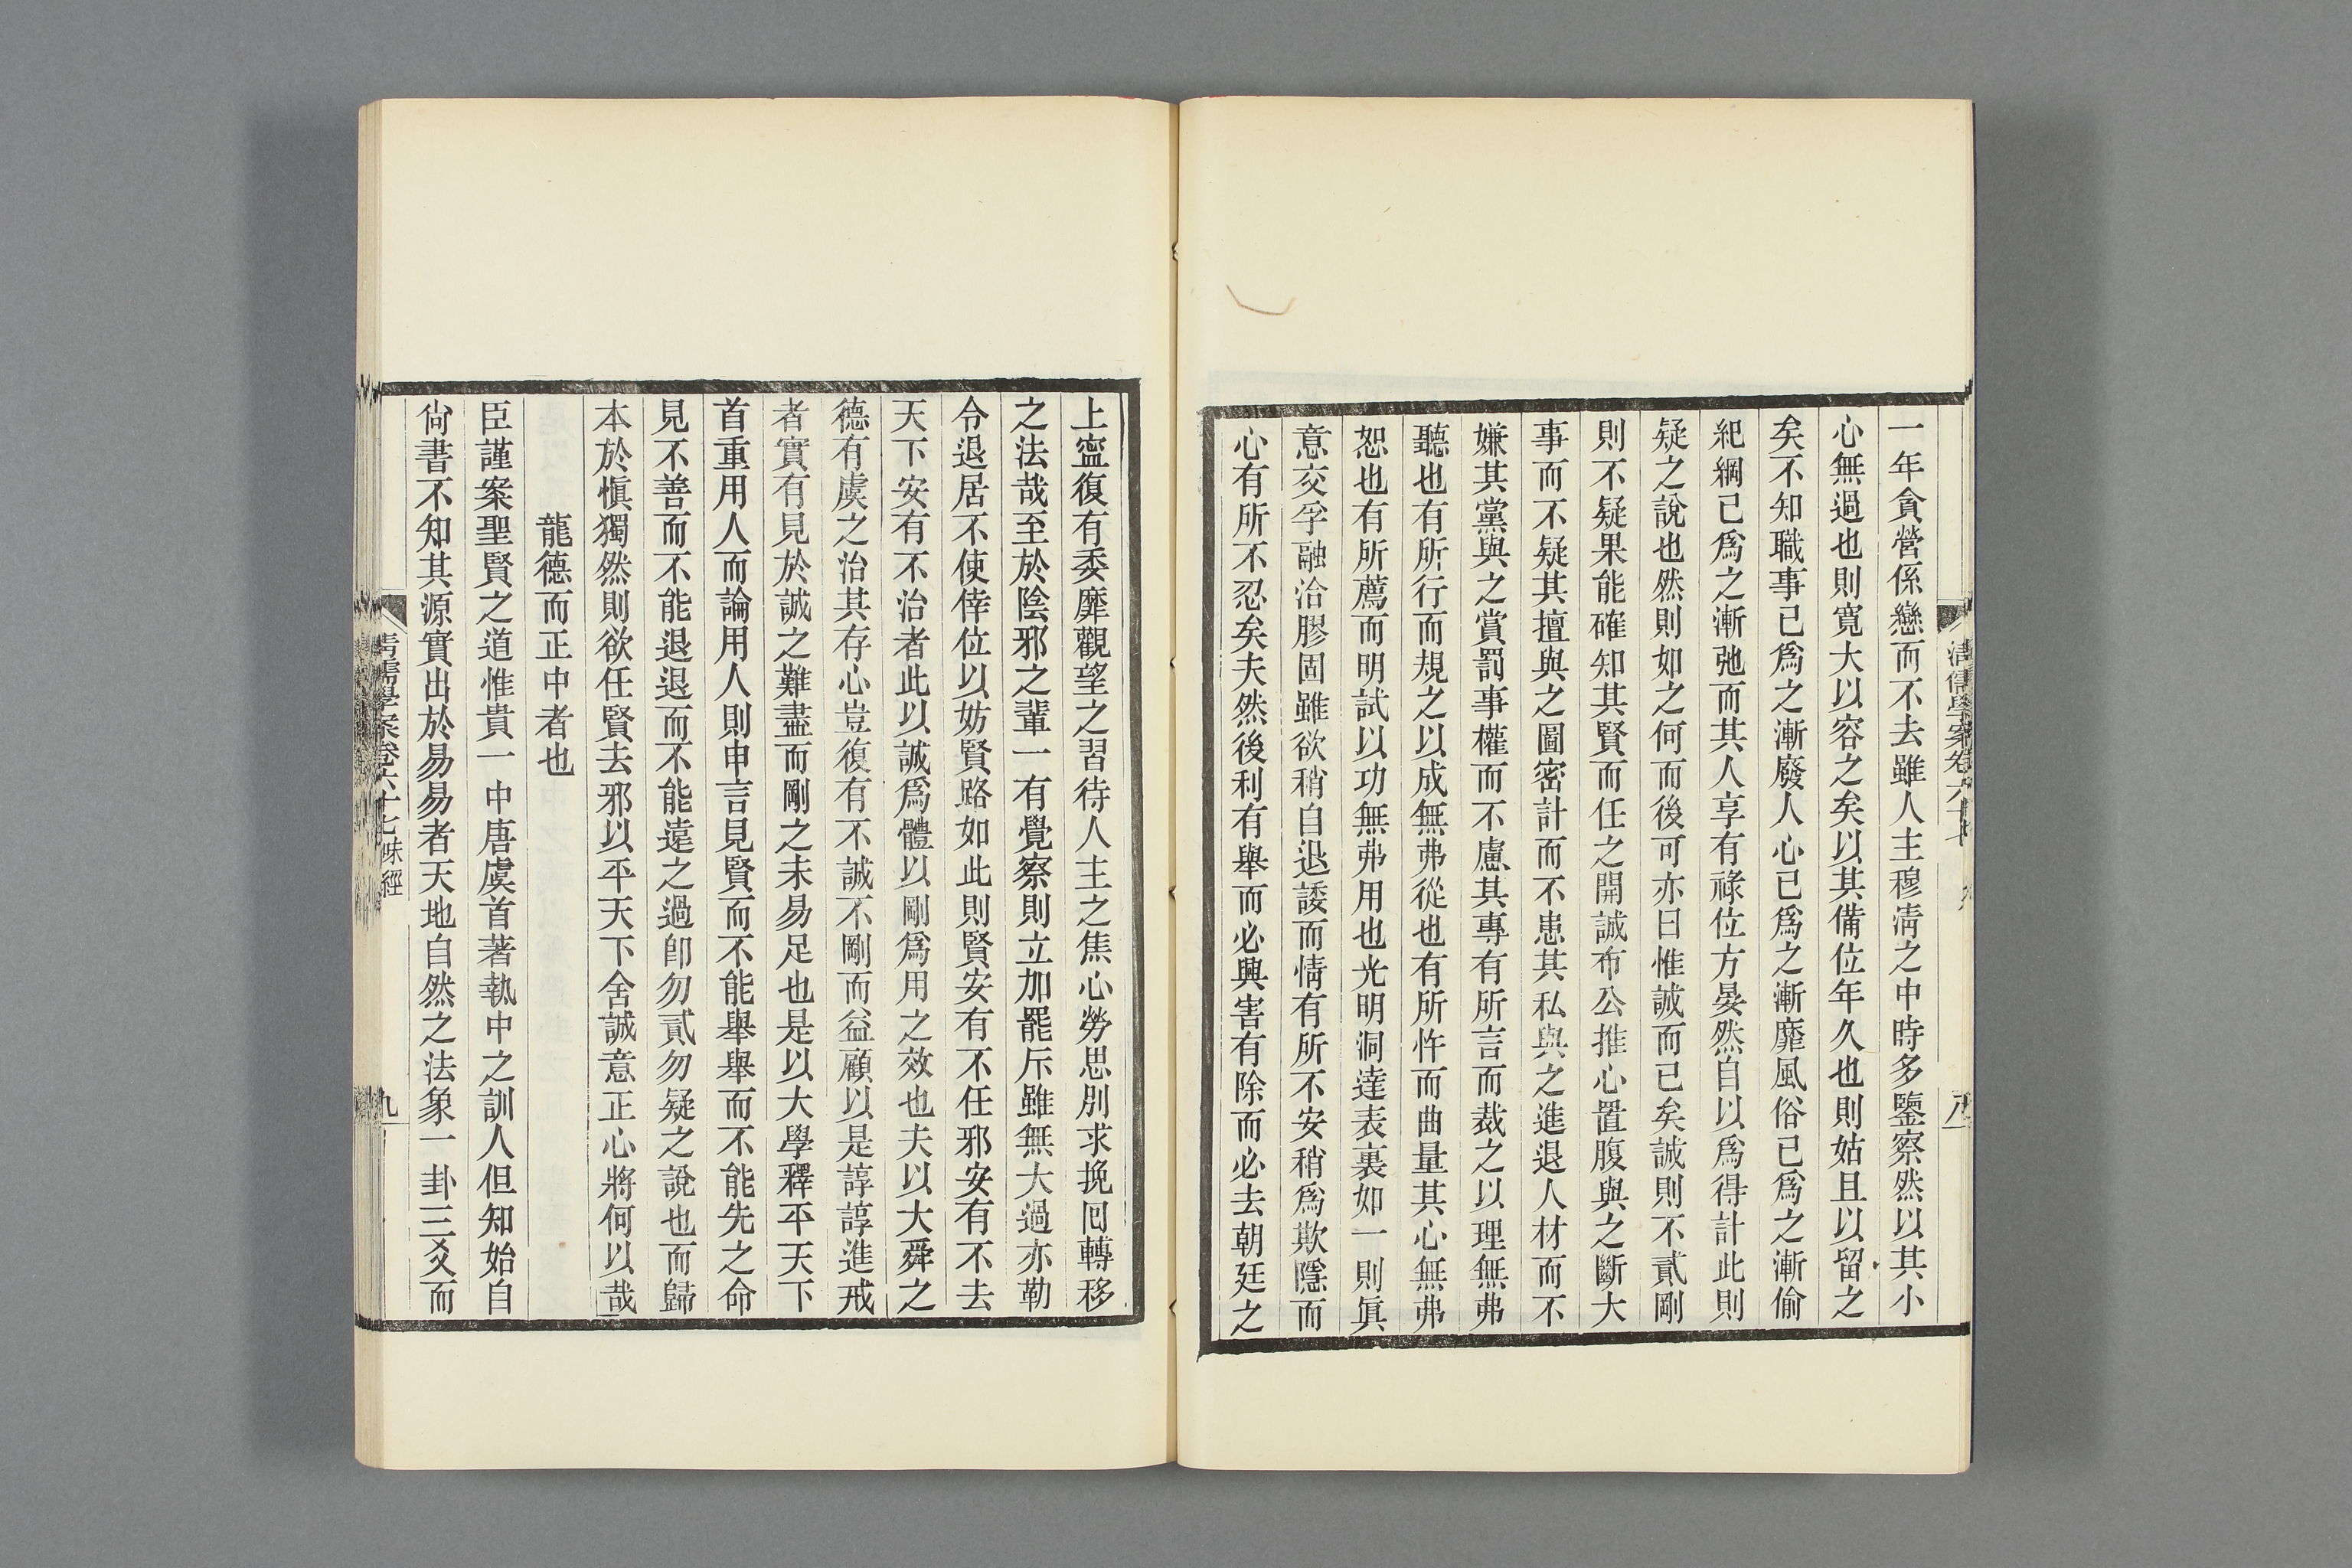 清儒學案卷六十七
八
一年貪營係戀而不去雖人主穆清之中時多鑒察然以其小
心無過也則寬大以容之矣以其備位年久也則姑且以留之
矣不知職事已爲之漸廢人心已爲之漸靡風俗已爲之漸偷
紀綱已爲之漸弛而其人享有祿位方晏然自以爲得計此則
疑之說也然則如之何而後可亦曰惟誠而已矣誠則不貳剛
則不疑果能確知其賢而任之開誠布公推心置腹與之斷大
事而不疑其擅與之圖密計而不患其私與之進退人材而不
嫌其黨與之賞罰事權而不慮其專有所言而裁之以理無弗
聽也有所行而規之以成無弗從也有所忤而曲量其心無弗
恕也有所薦而明試以功無弗用也光明洞達表裏如一則眞
意交孚融洽膠固雖欲稍自退諉而情有所不安稍爲欺隱而
心有所不忍矣夫然後利有舉而必興害有除而必去朝廷之
上寍復有委靡觀望之習待人主之焦心勞思別求挽囘轉移
之法哉至於陰邪之輩一有覺察則立加罷斥雖無大過亦勒
令退居不使倖位以妨賢路如此則賢安有不任邪安有不去
天下安有不治者此以誠爲體以剛爲用之效也夫以大舜之
德有虞之治其存心豈復有不誠不剛而益顧以是諄諄進戒
者實有見於誠之難盡而剛之未易足也是以大學釋平天下
首重用人而論用人則申言見賢而不能舉舉而不能先之命
見不善而不能退退而不能遠之過卽勿貳勿疑之說也而歸
本於愼獨然則欲任賢去邪以平天下舍誠意正心將何以哉
龍德而正中者也
臣謹案聖賢之道惟貴一中唐虞首著執中之訓人但知始自
尙書不知其源實出於易易者天地自然之法象一卦三爻而
清儒學案卷六十七味經
九